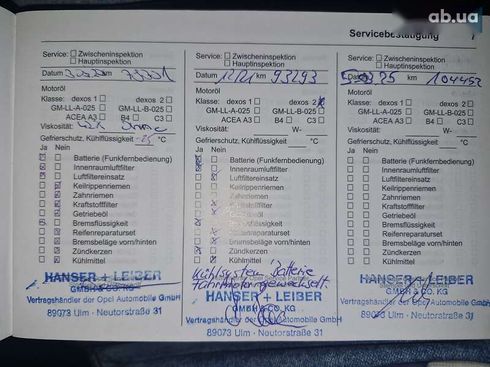 ab.ua
Servicebestätigung 7
Service: Zwischeninspektion
Hauptinspektion
Datum km 73201
Motoröl
Klasse: dexos 1 dexos 2
GM-LL-A-025 GM-LL-B-025
ACEA A3 B4 C3
Viskosität:
Gefrierschutz, Kühlflüssigkeit -25 °C
Ja Nein
Batterie (Funkfernbedienung)
Innenraumluftfilter
Luftfiltereinsatz
Keilrippenriemen
Zahnriemen
Kraftstofffilter
Getriebeöl
Bremsflüssigkeit
Reifenreparaturset
Bremsbeläge vorn/hinten
Zündkerzen
Kühlmittel
HANSER + LEIBER
GMBH & CO. KG
Vertragshändler der Opel Automobile GmbH
89073 Ulm - Neutorstraße 31
Service: Zwischeninspektion
Hauptinspektion
Datum 12/21 km 93293
Motoröl
Klasse: dexos 1 dexos 2
GM-LL-A-025 GM-LL-B-025
ACEA A3 B4 C3
Viskosität: W-
Gefrierschutz, Kühlflüssigkeit °C
Ja Nein
Batterie (Funkfernbedienung)
Innenraumluftfilter
Luftfiltereinsatz
Keilrippenriemen
Zahnriemen
Kraftstofffilter
Getriebeöl
Bremsflüssigkeit
Reifenreparaturset
Bremsbeläge vorn/hinten
Zündkerzen
Kühlmittel
Kühlsystem Batterie
gewechselt.
HANSER + LEIBER
GMBH & CO. KG
Vertragshändler der Opel Automobile GmbH
89073 Ulm - Neutorstraße 31
Service: Zwischeninspektion
Hauptinspektion
km 104452
Motoröl
Klasse: dexos 1 dexos 2
GM-LL-A-025 GM-LL-B-025
ACEA A3 B4 C3
Viskosität: W-
Gefrierschutz, Kühlflüssigkeit °C
Ja Nein
Batterie (Funkfernbedienung)
Innenraumluftfilter
Luftfiltereinsatz
Keilrippenriemen
Zahnriemen
Kraftstofffilter
Getriebeöl
Bremsflüssigkeit
Reifenreparaturset
Bremsbeläge vorn/hinten
Zündkerzen
Kühlmittel
HANSER + LEIBER
GMBH & CO. KG
Vertragshändler der Opel Automobile GmbH
89073 Ulm - Neutorstraße 31